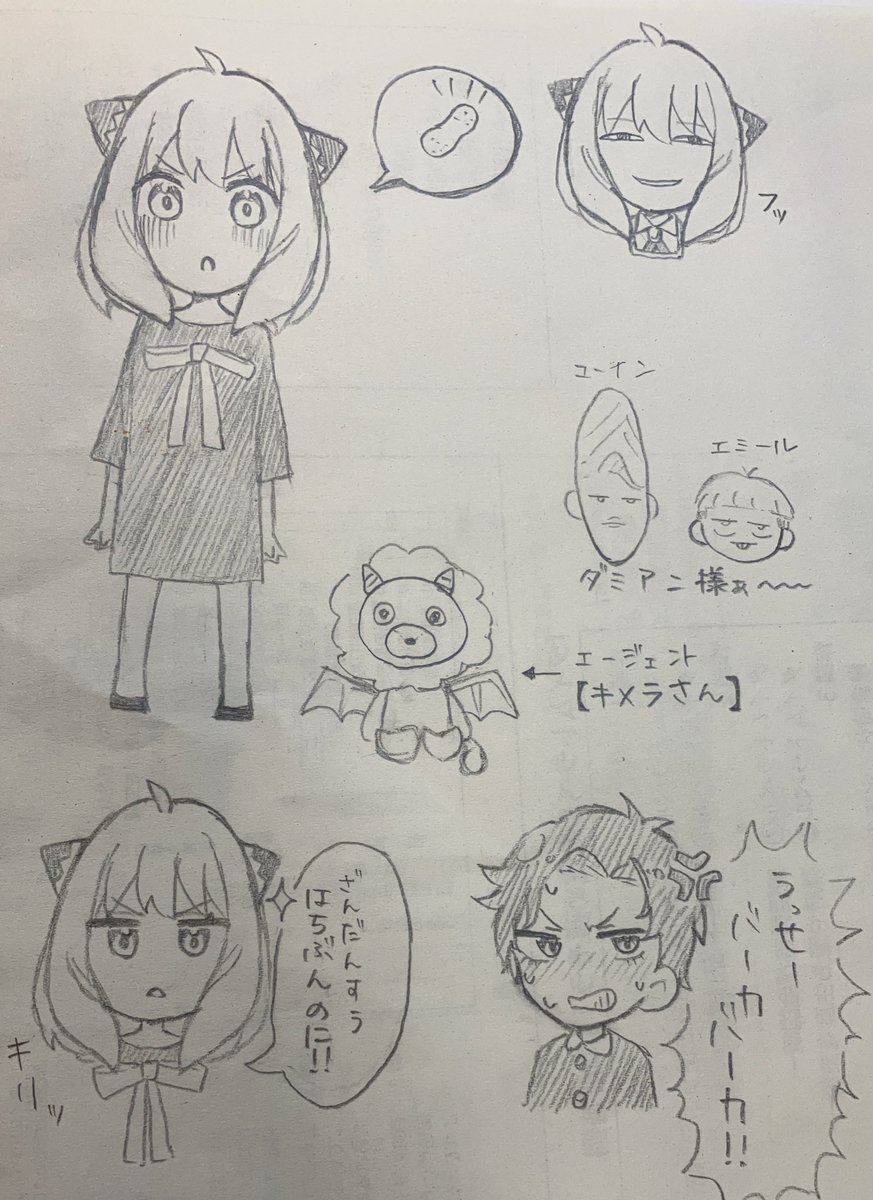 フッ
ユーイン
エミール
ダミアン様ぁ〜〜
エージェント
【キメラさん】
ざんだんすう
はちぶんのに!!
キリッ
うっせー
バーカ
バーカ!!